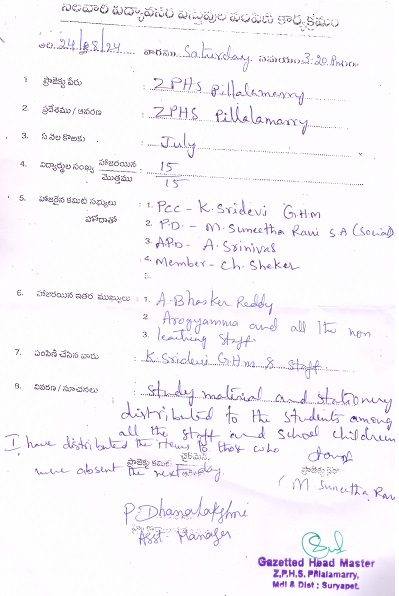 నెలవారి విద్యావసర వస్తువుల పంపిణి కార్యక్రమం
తేది. 24/08/24 వారము Saturday సమయం 3:20 Pm
1 ప్రాజెక్టు పేరు : ZPHS Pillalamarry
2. ప్రదేశము / ఆవరణ : ZPHS Pillalamarry
3. ఏ నెల కొఱకు : July
4. విద్యార్థుల సంఖ్య హాజరయిన : 15
మొత్తము 15
5. హాజరైన కమిటీ సభ్యులు : 1. PCC - K. Sridevi G.H.M
హోదాతో 2. P.D. - M. Suneetha Rani S.A (Social)
3. APD - A. Srinivas
4. Member - Ch. Sheker
6. హాజరయిన ఇతర ముఖ్యులు : 1. A. Bhasker Reddy
2. Arogyamma and all the non
3. teaching Staff.
7. పంపిణి చేసిన వారు : K. Sridevi G.H.M & Staff
8. వివరణ / సూచనలు : Study material and stationery
distributed to the students among
all the staff and school children
I have distributed the items to those who
were absent the next day.
ప్రాజెక్టు కమిటీ చైర్మెన్
(M Suneetha Rani
P. Dhanalakshmi
Asst. Manager
Gazetted Head Master
Z.P.H.S. Pillalamarry,
Mdl & Dist : Suryapet.